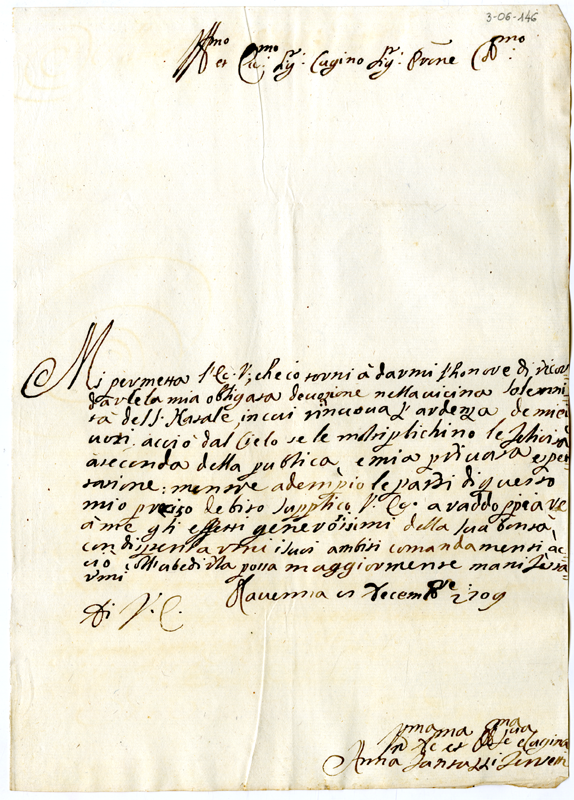 3-06-146
Ill.mo et Ecc.mo Sig.r Cugino Sig.r Prone Col.mo
Mi permetta l'Ecc. V. che io torni à darmi l'honore di ricor
darle la mia obligata devozione nella vicina solenni
tà del S. Natale, in cui rinuova l'ardezza de miei
voti acciò dal Cielo se le moltiplichino le felicità
à seconda della publica, e mia privata espet
tazione: mentre adempio le parti di questo
mio preciso debito supplico V. Ecc. a raddoppiare
à me gli effetti generosissimi della sua bontà,
con dispensarmi i suoi ambiti comandamenti ac
ciò coll'abedirla possa maggiormente manifestar
mi
Di V. E. Ravenna Decembre 1709
Anna